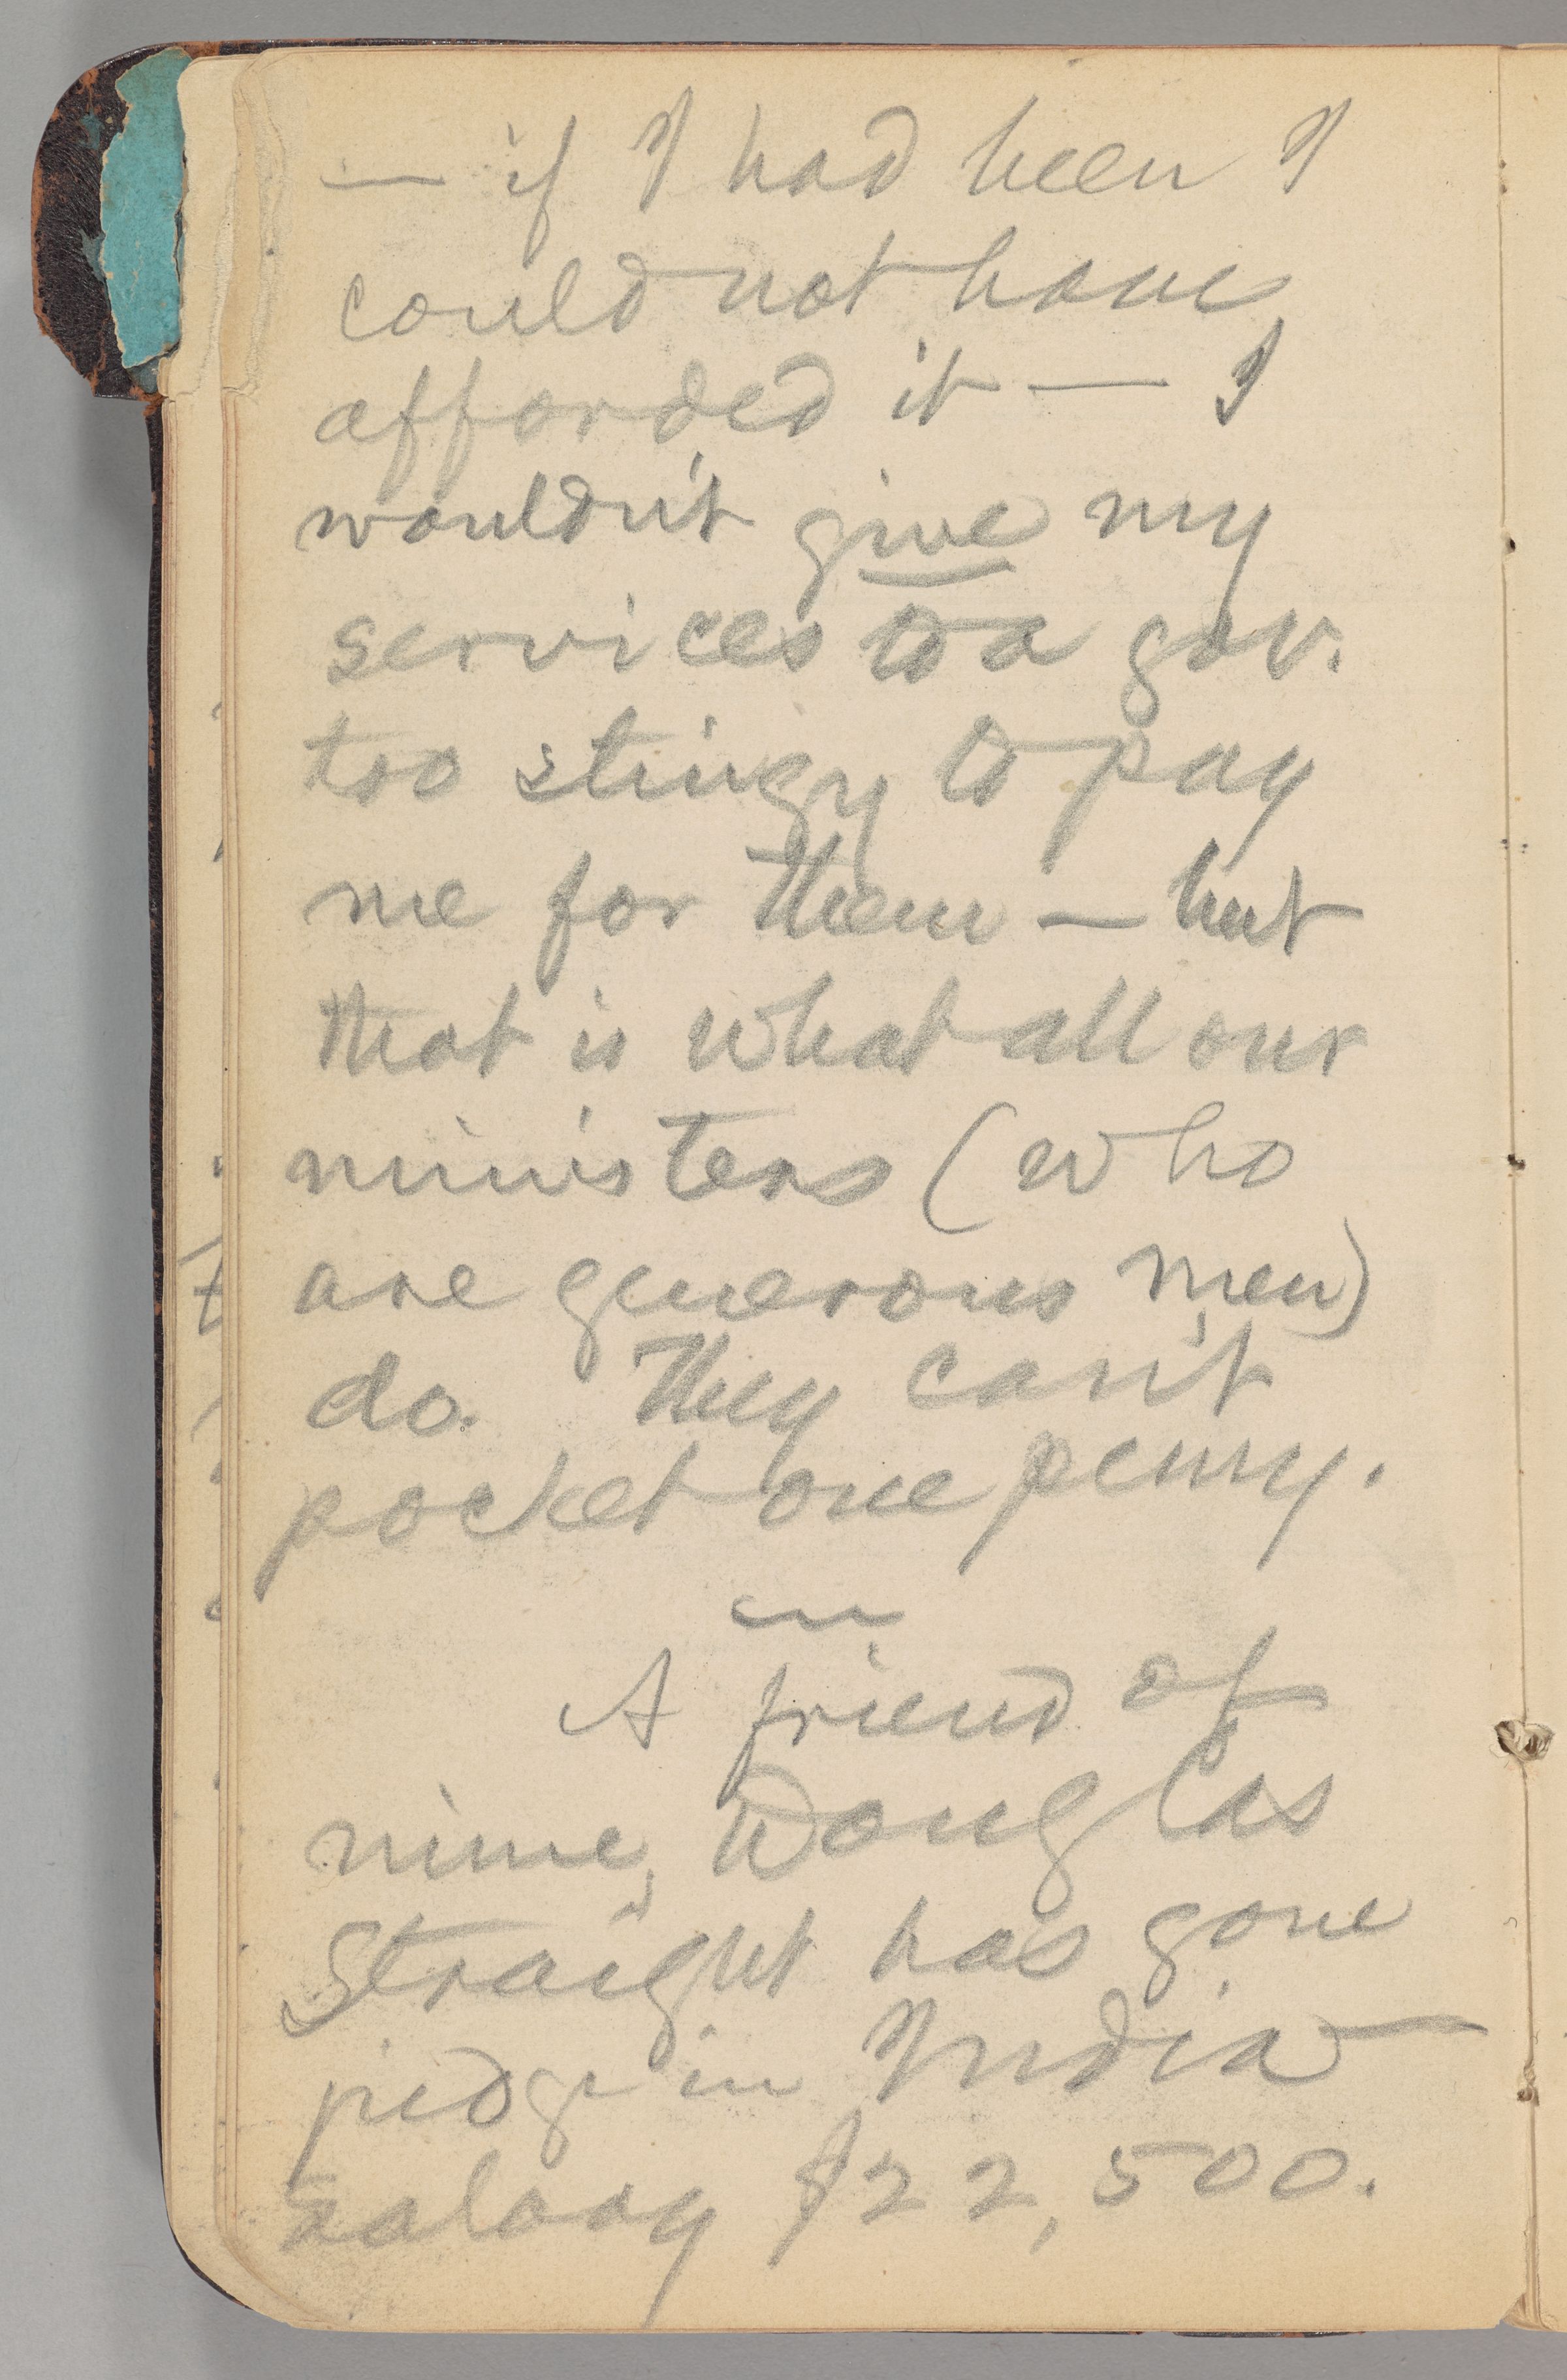 — if I had been I
could not have
afforded it — I
wouldn't give my
services to a gov.
too stingy to pay
me for them — but
that is what all our
ministers (who
are generous men)
do. They can't
pocket one penny.
A friend of
mine, Douglas
Straight has gone
judge in India —
salary $22,500.